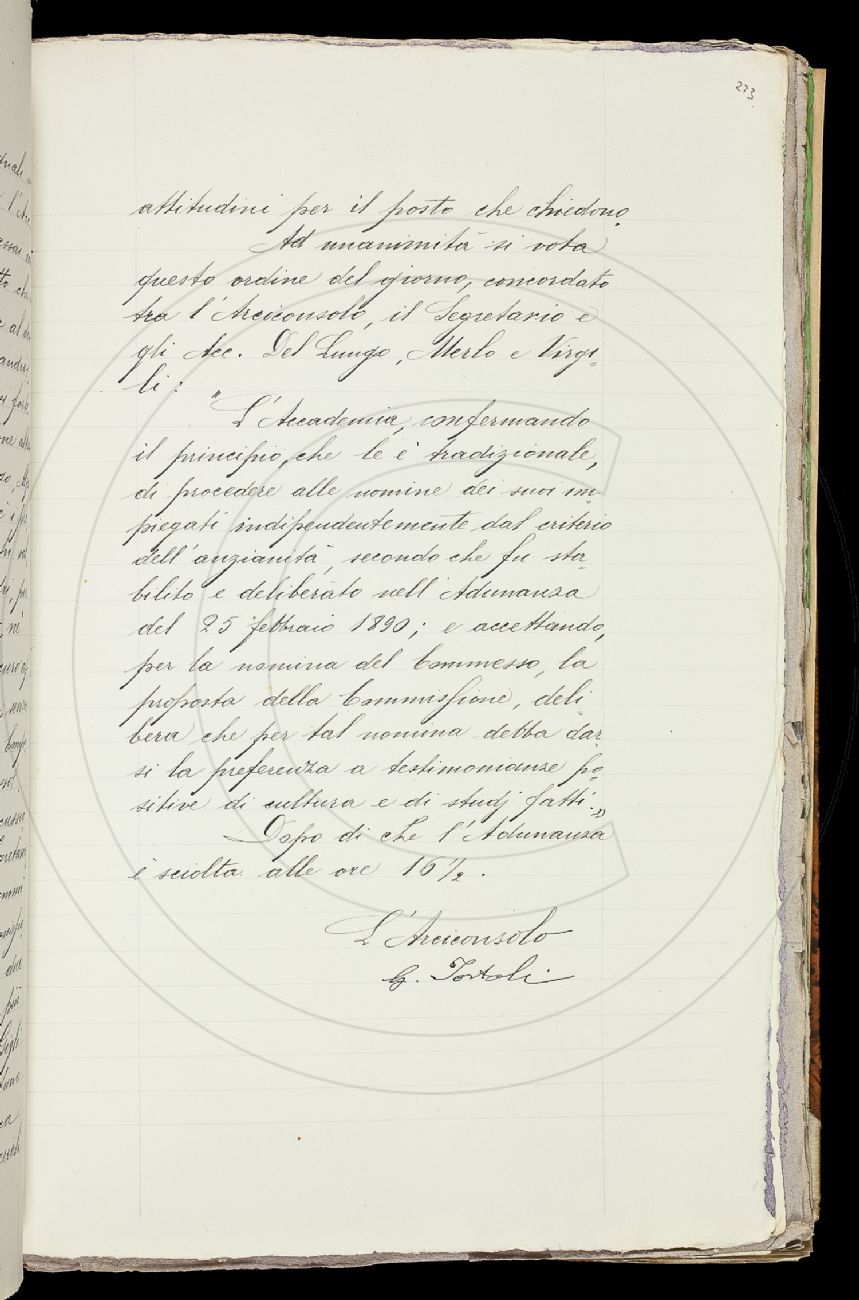 273
attitudini per il posto che chiedono.
Ad unanimità si vota
questo ordine del giorno, concordato
tra l'Arciconsolo, il Segretario e
gli Acc. Del Lungo, Merlo e Virgi-
li:
"L'Accademia, confermando
il principio, che le è tradizionale,
di procedere alle nomine dei suoi im-
piegati indipendentemente dal criterio
dell'anzianità, secondo che fu sta-
bilito e deliberato nell'Adunanza
del 25 febbraio 1890; e accettando,
per la nomina del Commesso, la
proposta della Commissione, deli-
bera che per tal nomina debba dar-
si la preferenza a testimonianze po-
sitive di cultura e di studj fatti."
Dopo di che l'Adunanza
è sciolta alle ore 16 ½.
L'Arciconsolo
G. Tortoli